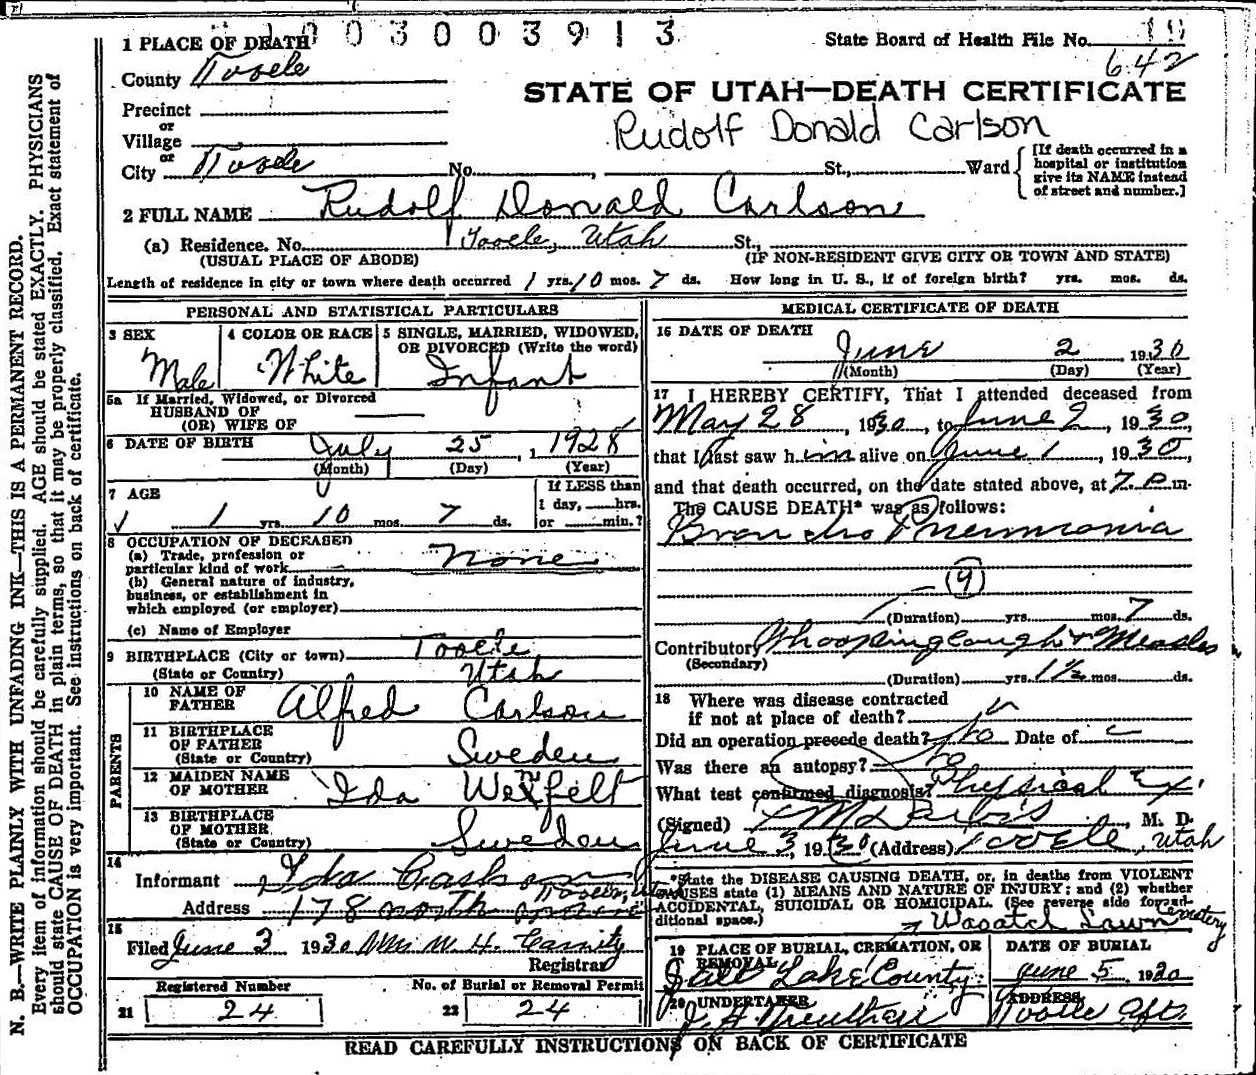 1003003913
1 PLACE OF DEATH
State Board of Health File No. 10
642
County Tooele
STATE OF UTAH—DEATH CERTIFICATE
Precinct
Rudolf Donald Carlson
or
Village
or
City Tooele No. , St., Ward
[If death occurred in a hospital or institution give its NAME instead of street and number.]
2 FULL NAME Rudolf Donald Carlson
(a) Residence. No. Tooele, Utah St.,
(USUAL PLACE OF ABODE) (IF NON-RESIDENT GIVE CITY OR TOWN AND STATE)
Length of residence in city or town where death occurred 1 yrs. 10 mos. 7 ds. How long in U. S., if of foreign birth? yrs. mos. ds.
PERSONAL AND STATISTICAL PARTICULARS
3 SEX Male
4 COLOR OR RACE White
5 SINGLE, MARRIED, WIDOWED, OR DIVORCED (Write the word) Infant
5a If Married, Widowed, or Divorced
HUSBAND OF
(OR) WIFE OF
6 DATE OF BIRTH July 25, 1928
(Month) (Day) (Year)
7 AGE
1 yrs. 10 mos. 7 ds.
If LESS than
1 day, hrs.
or min.?
8 OCCUPATION OF DECEASED
(a) Trade, profession or
particular kind of work None
(b) General nature of industry,
business, or establishment in
which employed (or employer)
(c) Name of Employer
9 BIRTHPLACE (City or town) Tooele
(State or Country) Utah
PARENTS
10 NAME OF
FATHER Alfred Carlson
11 BIRTHPLACE
OF FATHER
(State or Country) Sweden
12 MAIDEN NAME
OF MOTHER Ida
13 BIRTHPLACE
OF MOTHER
(State or Country) Sweden
14
Informant Ida Carlson
Address 178 North Tooele, Utah
15
Filed June 3 1930
Registrar
Registered Number
21 24
No. of Burial or Removal Permit
22 24
MEDICAL CERTIFICATE OF DEATH
16 DATE OF DEATH
June 2, 1930
(Month) (Day) (Year)
17 I HEREBY CERTIFY, That I attended deceased from
May 28, 1930, to June 2, 1930,
that I last saw him alive on June 1, 1930,
and that death occurred, on the date stated above, at 7 P m.
The CAUSE DEATH* was as follows:
Broncho Pneumonia
(9)
(Duration) yrs. mos. 7 ds.
Contributory Whooping Cough & Measles
(Secondary)
(Duration) yrs. 1½ mos. ds.
18 Where was disease contracted
if not at place of death?
Did an operation precede death? No Date of
Was there an autopsy? No
What test confirmed diagnosis? Physical Ex.
(Signed) , M. D.
June 3, 1930 (Address) Tooele, Utah
*State the DISEASE CAUSING DEATH, or, in deaths from VIOLENT
CAUSES state (1) MEANS AND NATURE OF INJURY; and (2) whether
ACCIDENTAL, SUICIDAL OR HOMICIDAL. (See reverse side for additional space.)
Wasatch Lawn Cemetery
19 PLACE OF BURIAL, CREMATION, OR
REMOVAL
Salt Lake County
DATE OF BURIAL
June 5 1930
20 UNDERTAKER
ADDRESS
Tooele
READ CAREFULLY INSTRUCTIONS ON BACK OF CERTIFICATE
N. B.—WRITE PLAINLY WITH UNFADING INK—THIS IS A PERMANENT RECORD.
Every item of information should be carefully supplied. AGE should be stated EXACTLY. PHYSICIANS
should state CAUSE OF DEATH in plain terms, so that it may be properly classified. Exact statement of
OCCUPATION is very important. See instructions on back of certificate.